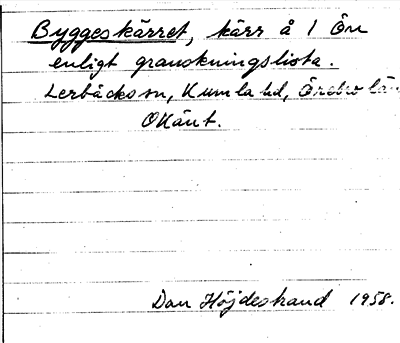 Byggeskärret, kärr å 1 Ön
enligt granskningslista.
Lerbäcks sn, Kumla hd, Örebro län
Okänt.
Dan Höjdestrand 1958.